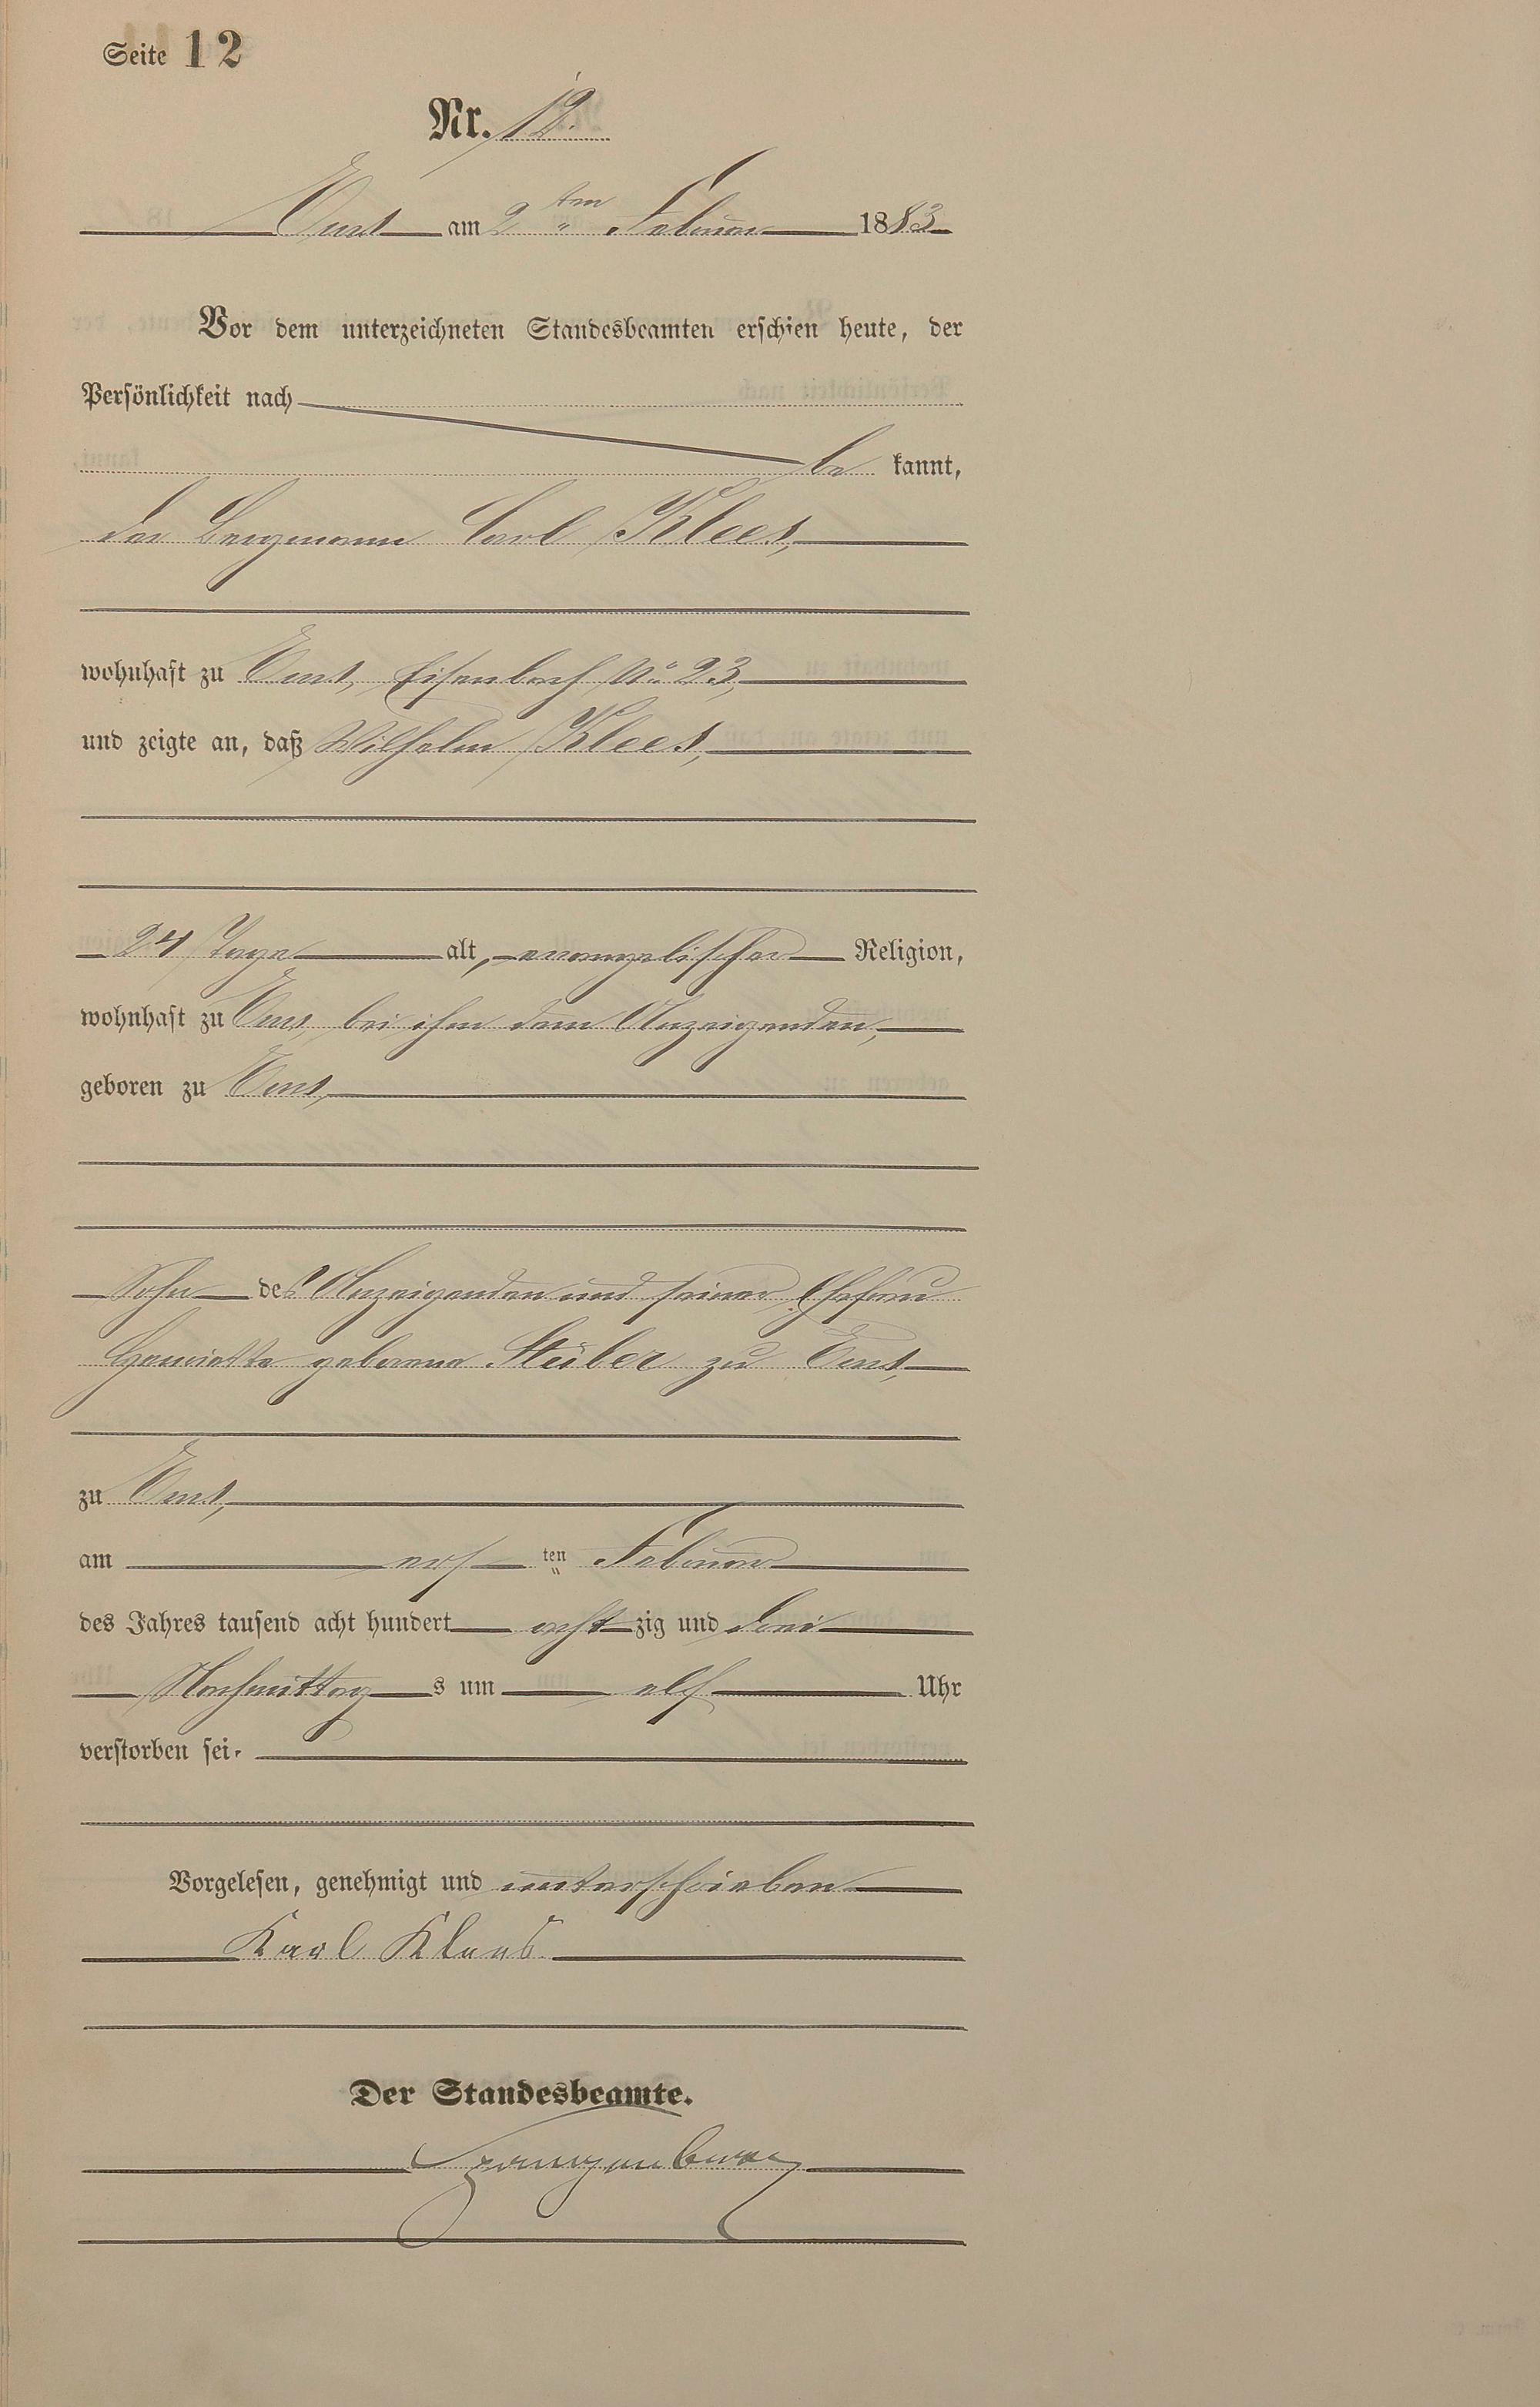 Seite 12
Nr. 12.
Ems am 2ten Februar 1883
Vor dem unterzeichneten Standesbeamten erschien heute, der
Persönlichkeit nach
be kannt,
der Bergmann Carl Klees,
wohnhaft zu Ems, Eisenbach No 23,
und zeigte an, daß Wilhelm Klees,
24 Tage alt, evangelischer Religion,
wohnhaft zu Ems, bei ihm dem Anzeigenden,
geboren zu Ems,
Sohn des Anzeigenden und seiner Ehefrau
Henriette geborene Stüber zu Ems,
zu Ems,
am ersten Februar
des Jahres tausend acht hundert acht zig und drei
Nachmittag s um elf Uhr
verstorben sei.
Vorgelesen, genehmigt und unterschrieben
Karl Klees
Der Standesbeamte.